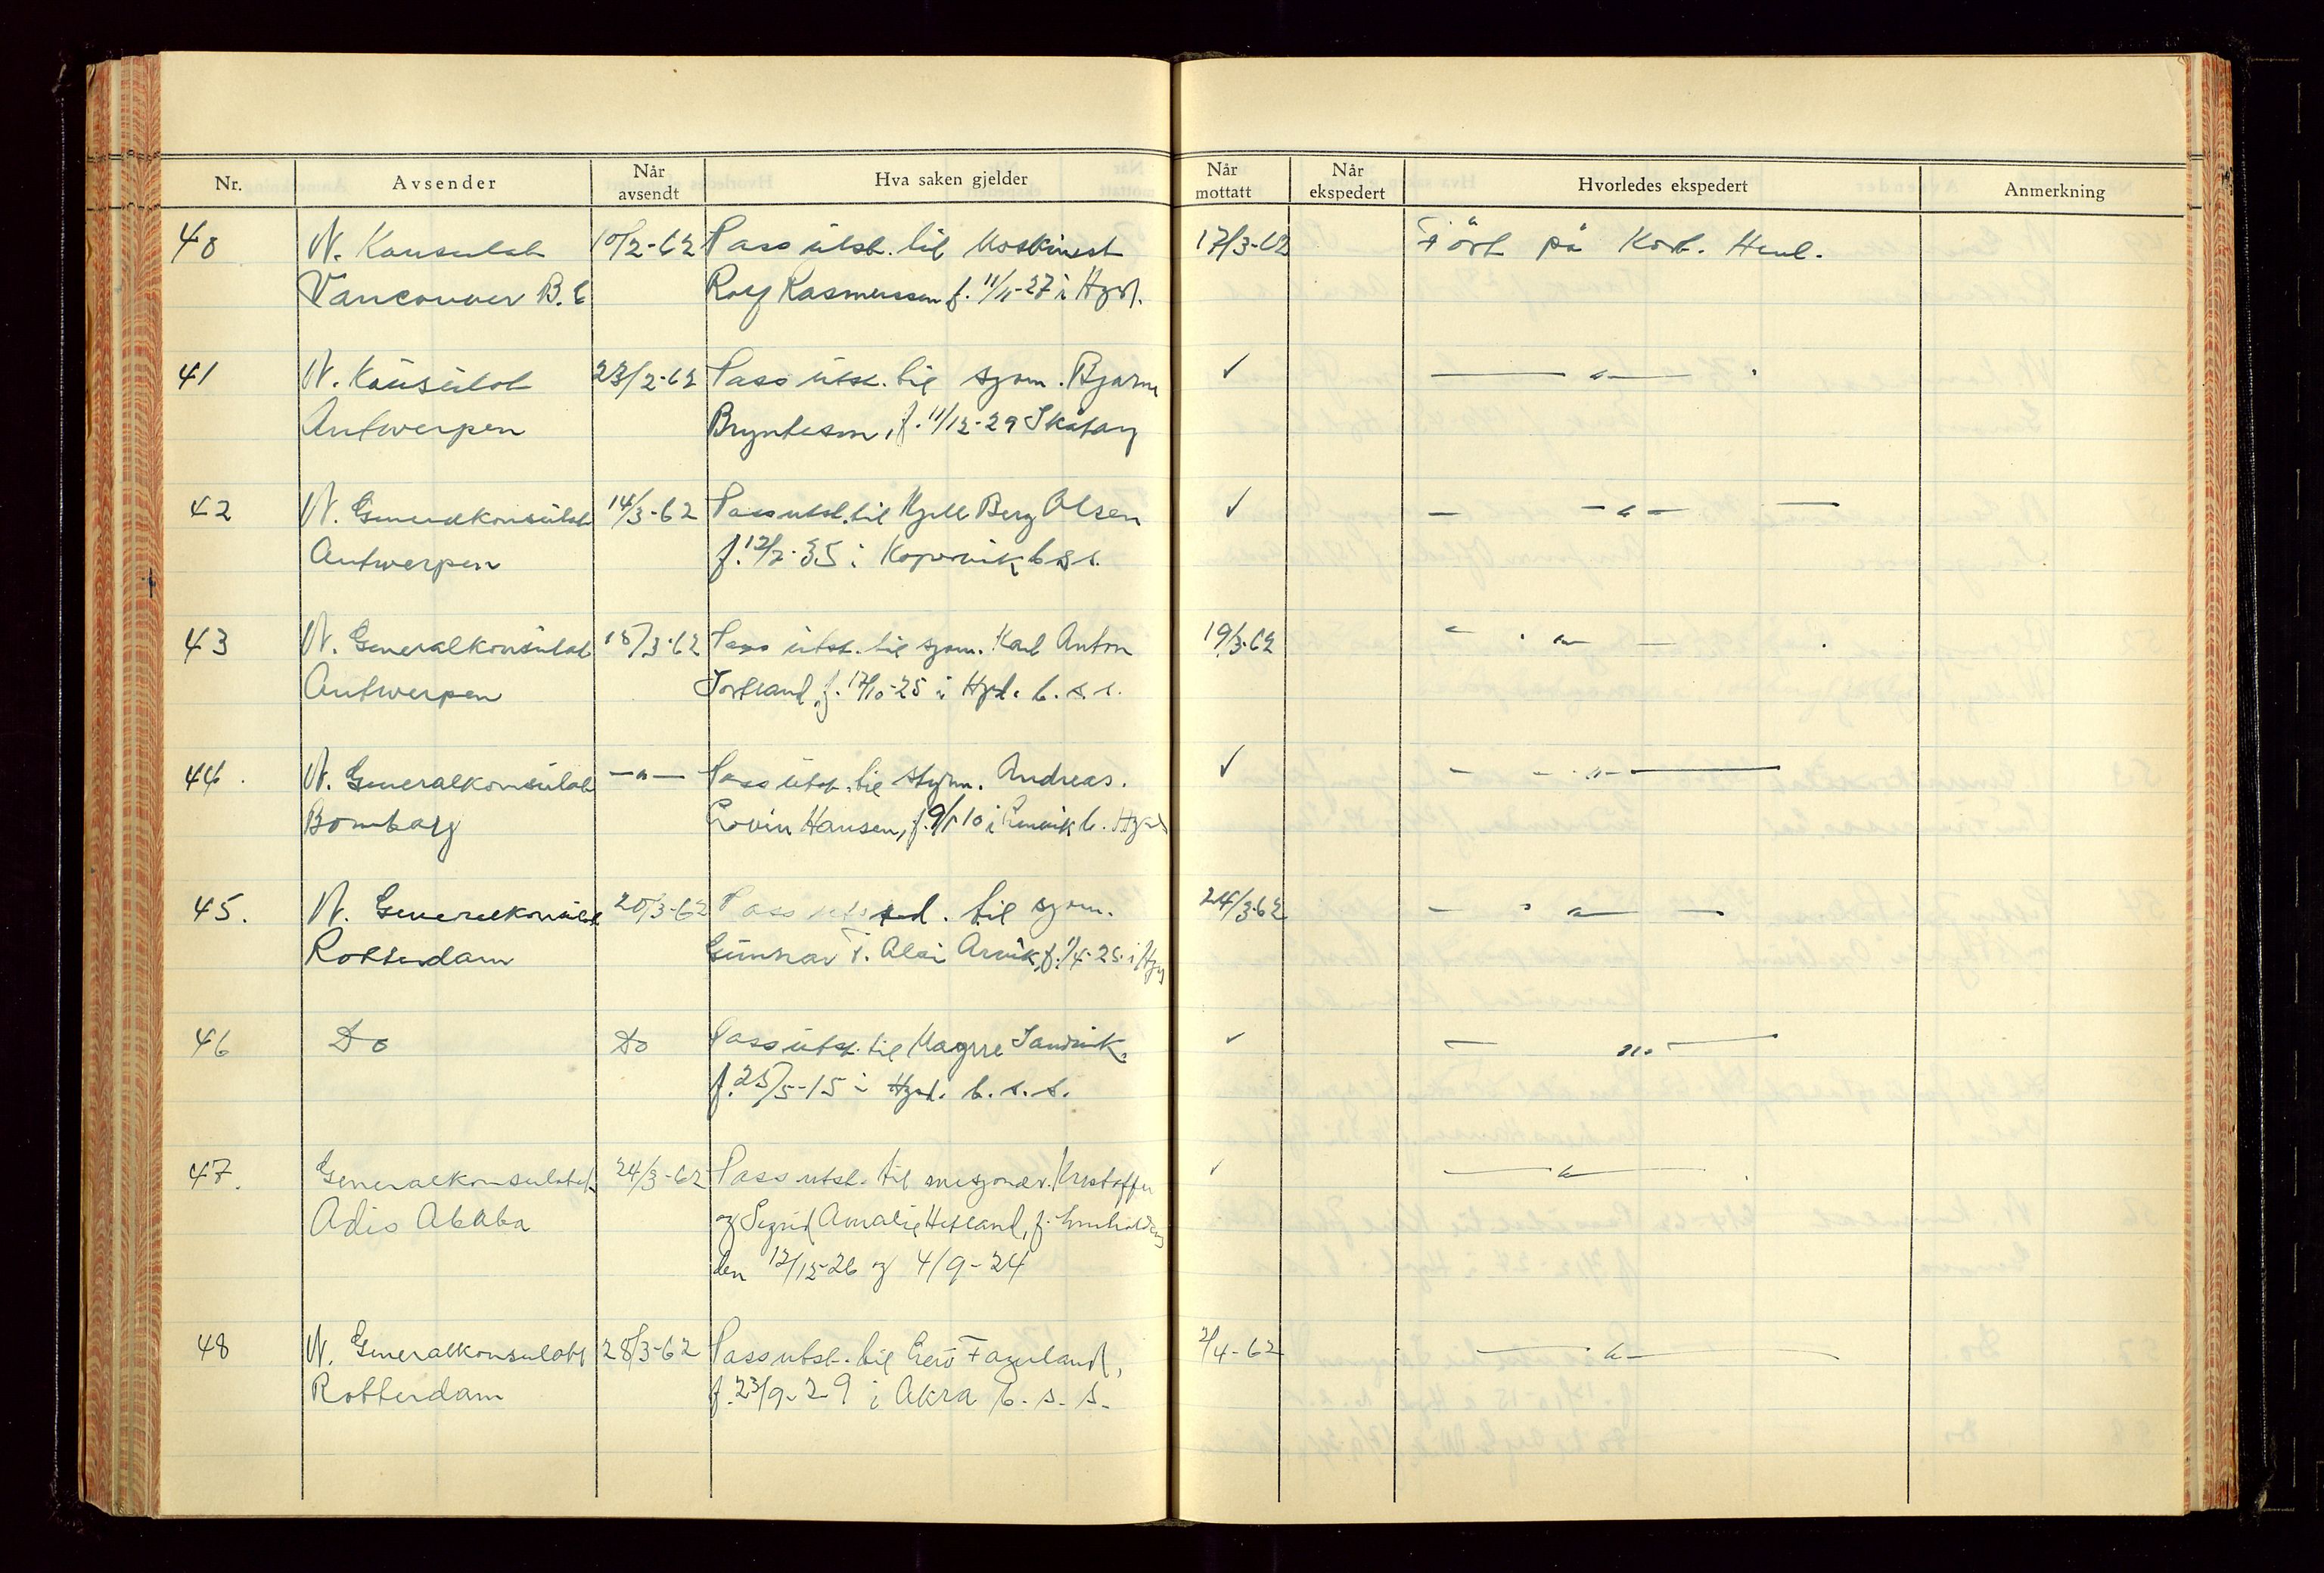 Nr. Avsender Når avsendt Hva saken gjelder Når mottatt Når ekspedert Hvorledes ekspedert Anmerkning
40 N. Konsulat 10/2-62 Pass utst. til Maskinist 17/3-62 Ført på Kort. Henl.
Vancouver B.C Rolf Rasmussen f. 11/11-27 i Hgsd.
41 N. Konsulat 23/2-62 Pass utst. til sjøm. Bjarne ✓ — " —
Antwerpen Bryntesen, f. 11/12-29 Skåtøy
42 N. Generalkonsulat 14/3-62 Pass utst. til Kjell Berg Olsen ✓ — " —
Antwerpen f. 12/2-35 i Kopervik b.s.s.
43 N. Generalkonsulat 15/3-62 Pass utst. til sjøm. Karl Anton 19/3-62 — " —
Antwerpen f. 17/10-25 i Hgsd. b.s.s.
44. N. Generalkonsulat — " — Pass utst. til Andreas ✓ — " —
Bombay Hansen, f. i b. Hgsd
45. N. Generalkonsulat 20/3-62 Pass utsted. til sjøm. 24/3-62 — " —
Rotterdam Gunnar T. Arvik, f. 1/4-25 i Hgsd
46 Do Do Pass utst. til Magne Sandvik ✓ — " —
f. 25/5-15 i Hgsd. b.s.s.
47. Generalkonsulatet 24/3-62 Pass utst. til misjonær. Kristoffer ✓ — " —
Adis Ababa og Sigrid Amalie Hetland, f.
den 12/12-26 og 4/9-24
48 N. Generalkonsulatet 28/3-62 Pass utst. til Fagerland, 2/4-62 — " —
Rotterdam f. 23/9-29 i Akra b.s.s.